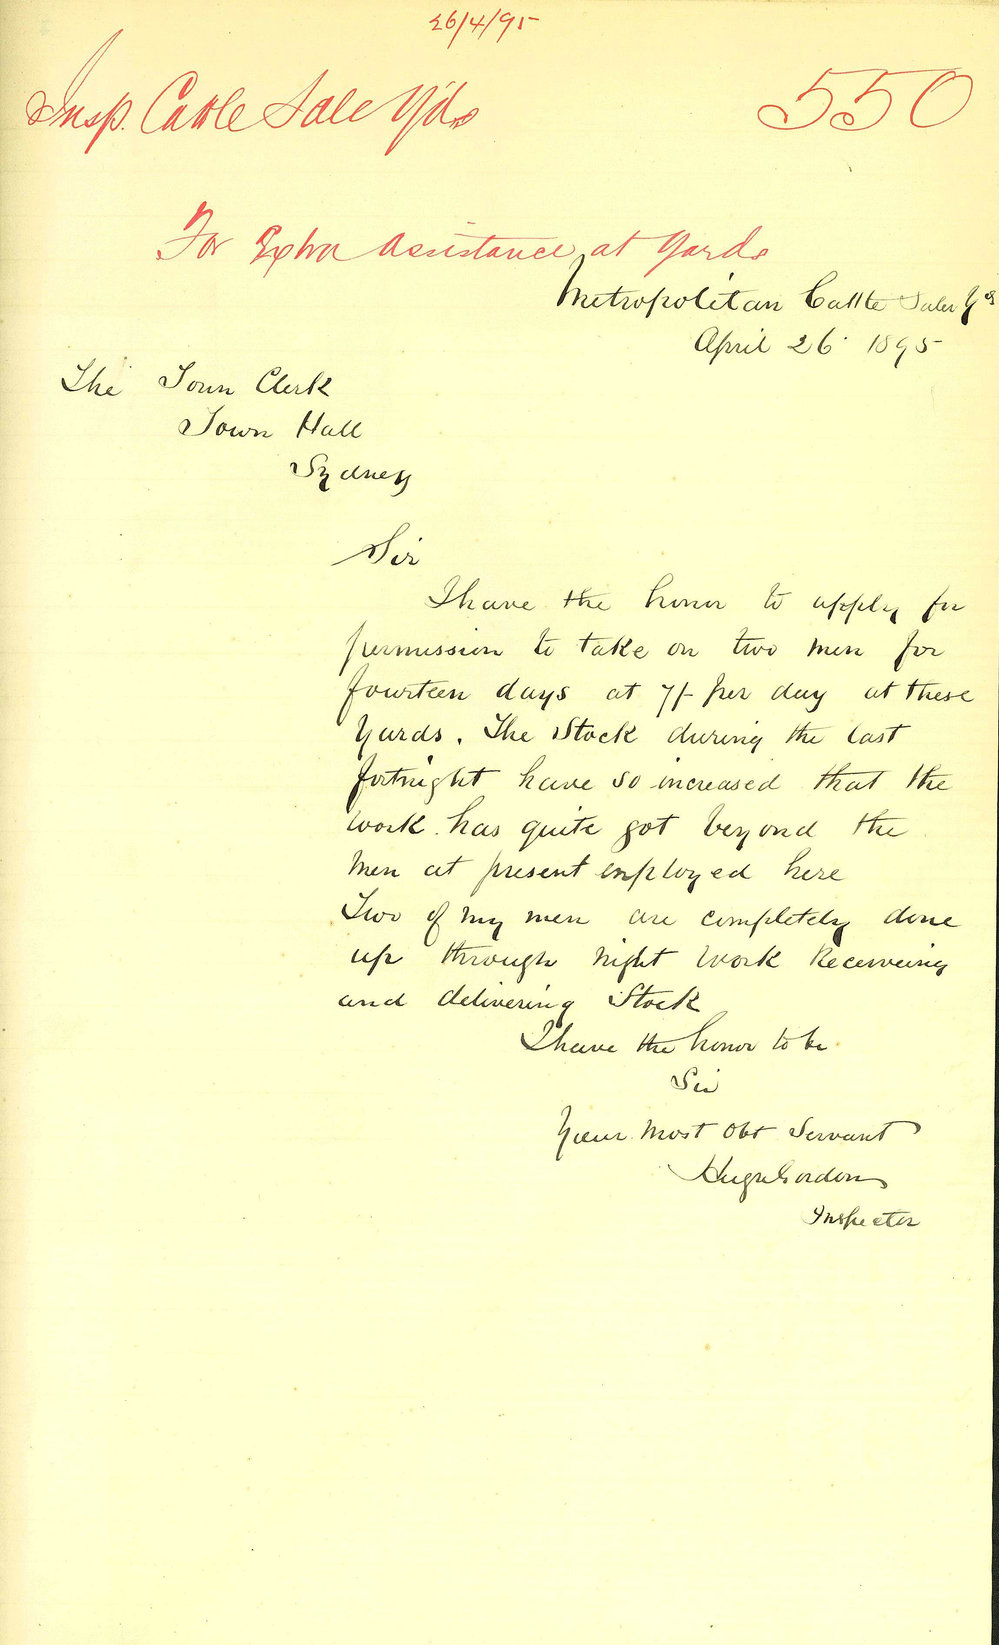 26/4/95
Insp. Cattle Sale Yds
550
For Extra Assistance at Yards
Metropolitan Cattle Sales Yds
April 26 1895
The Town Clerk
Town Hall
Sydney
Sir
I have the honor to apply for
permission to take on two men for
fourteen days at 7/- per day at these
Yards. The Stock during the last
fortnight have so increased that the
work has quite got beyond the
men at present employed here
Two of my men are completely done
up through night work Receiveing
and delivering Stock
I have the honor to be
Sir
Your most Obt Servant
Hugh Gordon
Inspector